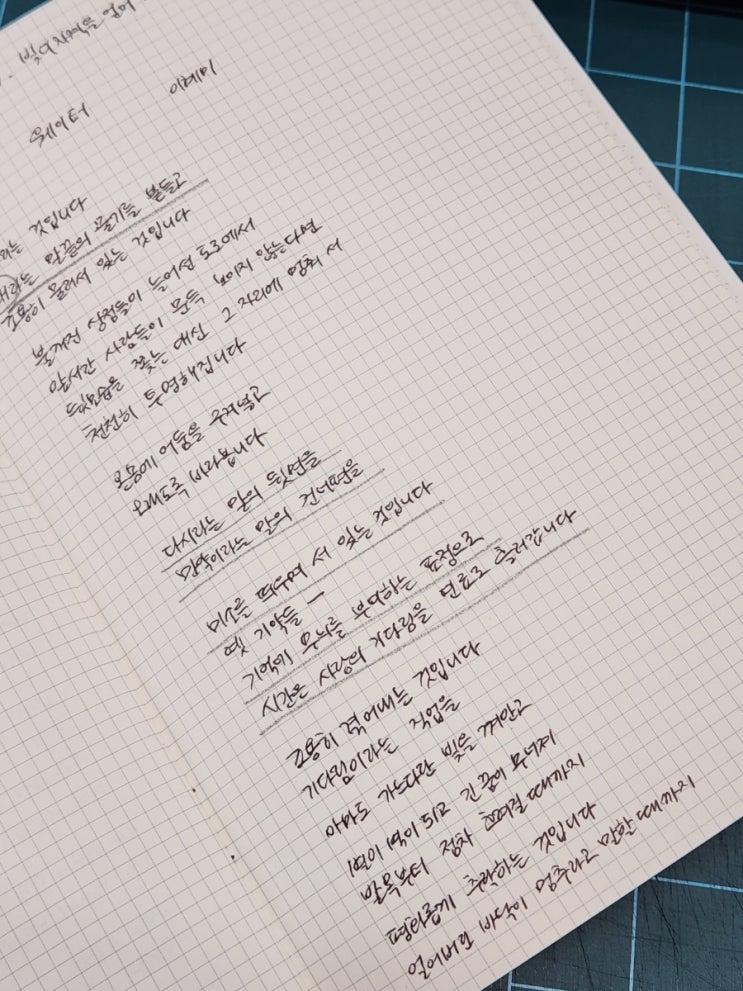 빛의 자격을 얻어
웨이터 이혜미
라는 것입니다
래라는 말끝의 물기를 붙들고
조용히 물러서 있는 것입니다
불 꺼진 상점들이 늘어선 도로에서
앞서간 사람들이 문득 보이지 않는다면
뒷모습을 쫓는 대신 그 자리에 멈춰 서
천천히 투명해집니다
온몸에 어둠을 구겨넣고
오래도록 바라봅니다
다시라는 말의 뒷면을
만약이라는 말의 건너편을
미소를 띄우며 서 있는 것입니다
옛 기약들 —
기억이 무늬를 부여하는 표정으로
시간은 사랑의 기다림을 연료로 흘러갑니다
조용히 겪어내는 것입니다
기다림이라는 직업을
아마도 가느다란 빛을 껴안고
1면이 1억이 되고 긴 끝이 무너져
발목부터 점차 흐려질 때까지
평화롭게 추락하는 것입니다
잃어버려 바닥이 멈추라고 말할 때까지